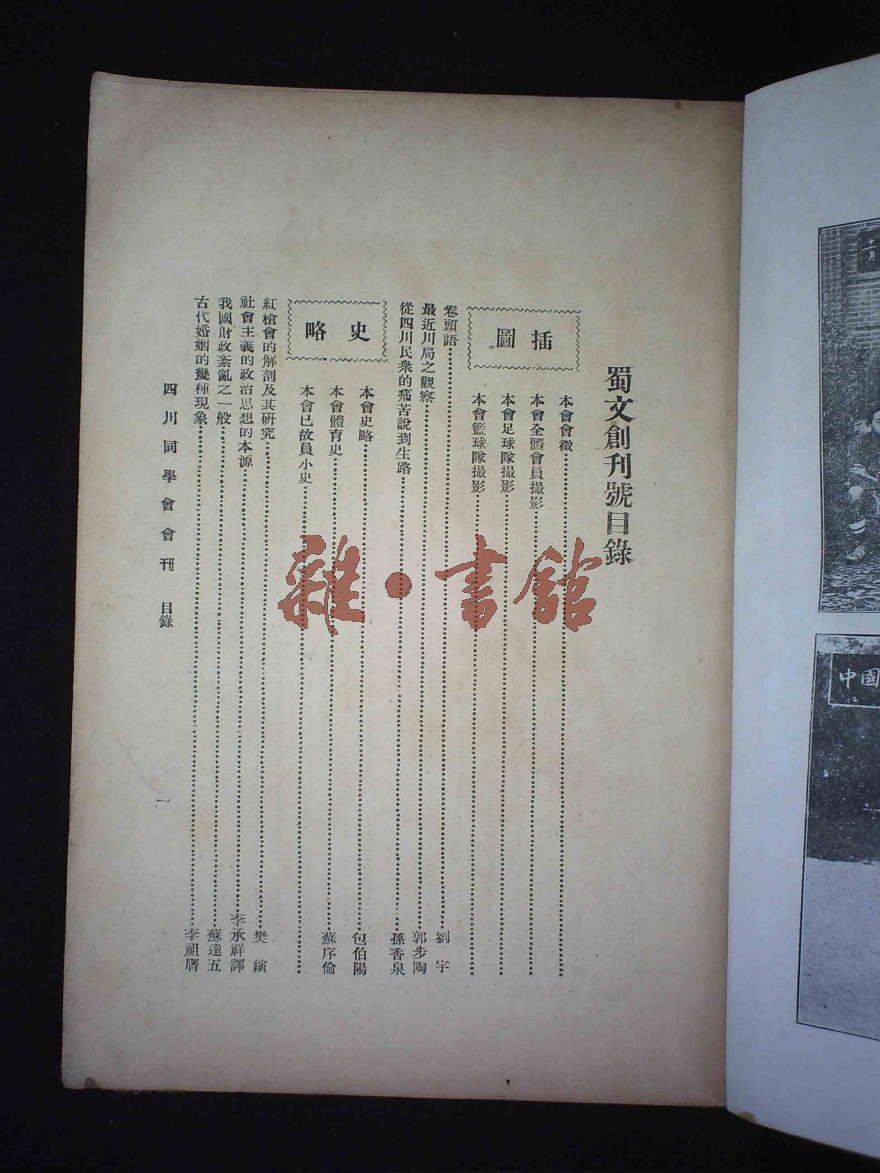 蜀文創刊號目錄
插圖
本會會徽
本會全體會員撮影
本會足球隊撮影
本會籃球隊撮影
卷頭語 劉宇
最近川局之觀察 郭步陶
從四川民衆的痛苦說到生路 孫香泉
史略
本會史略 包伯陽
本會體育史 蘇序倫
本會已故員小史
紅槍會的解剖及其研究 樊縯
社會主義的政治思想的本源 李承祥譯
我國財政紊亂之一般 蘇達五
古代婚姻的幾種現象 李祖膺
四川同學會會刊 目錄
一
雜·書館
中國